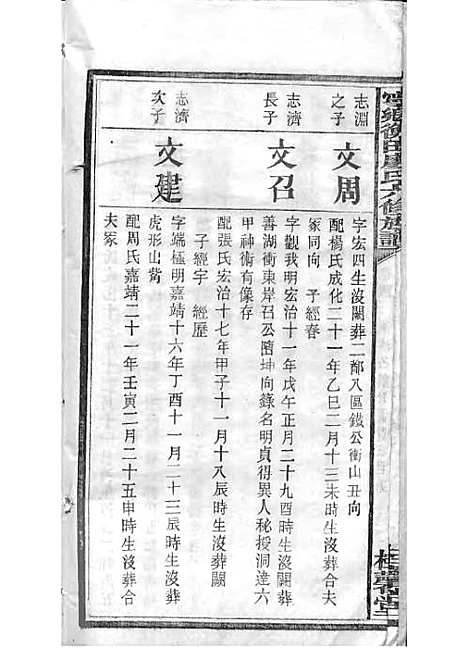 志淵
之子
文周
字宏四生沒闕葬二都八區鐵公衡山丑向
配楊氏成化二十一年乙巳二月十三未時生沒葬合夫
冢同向 子經春
志濟
長子
文召
字觀我明宏治十一年戊午正月二十九酉時生沒闕葬
善湖衝東岸召公隋坤向錄名明貞得異人秘授洞達六
甲神術有像存
配張氏宏治十七年甲子十一月十八辰時生沒葬闕
子經宇 經歷
志濟
次子
文建
字端極明嘉靖十六年丁酉十一月二十三辰時生沒葬
虎形山嘴
配周氏嘉靖二十一年壬寅二月二十五申時生沒葬合
夫冢
氏六修族譜
堂